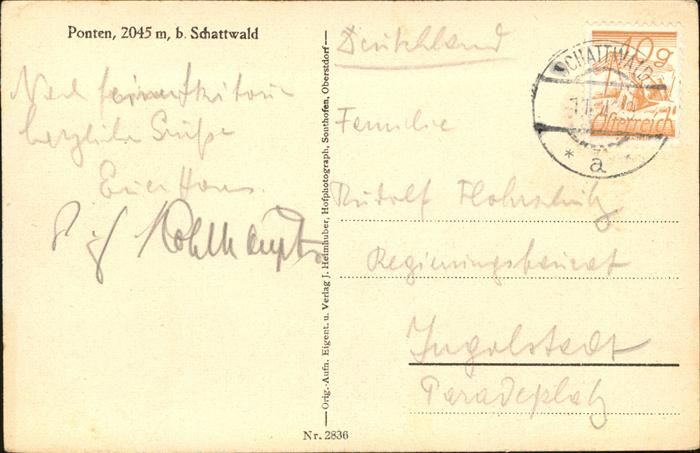 Ponten, 2045 m, b. Schattwald
Nach
herzliche Grüße
Euer Hans.
Kohlhaupt
Orig.-Aufn. Eigent. u. Verlag J. Heimhuber, Hofphotograph, Sonthofen, Oberstdorf
Nr. 2836
Deutschland
10 g
SCHATTWALD
Österreich
* a *
Familie
Rudolf
Regierungsbaurat
Ingolstadt
Paradeplatz